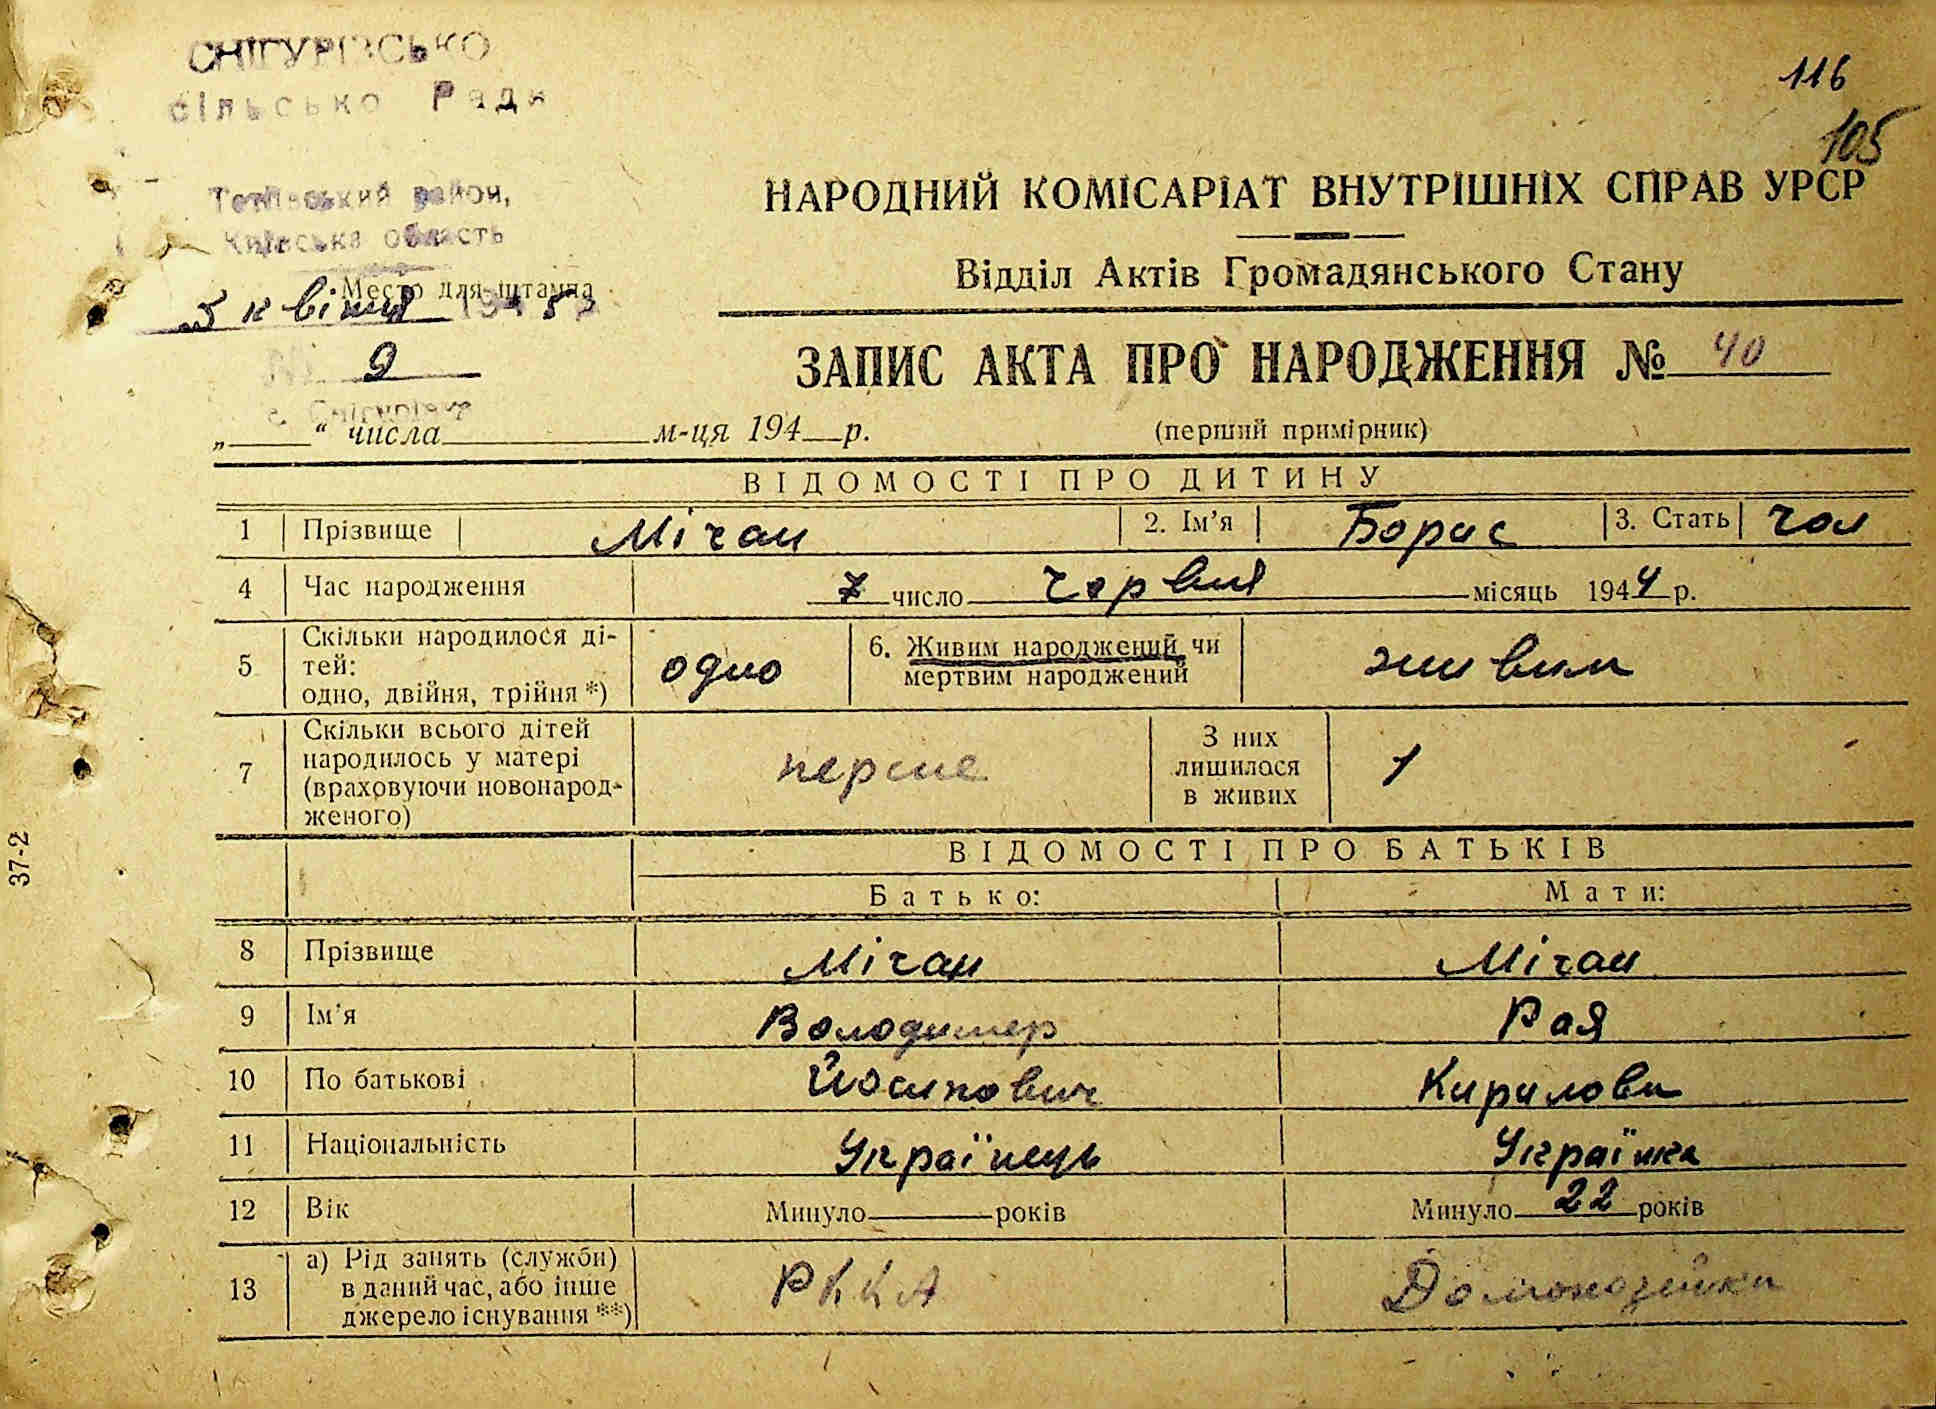 СНІГУРІВСЬКО
сільсько Рада
116
105
Тетіївський район,
Київська область
Место для штампа
5 квітня 1945
9
с. Снігурівка
НАРОДНИЙ КОМІСАРІАТ ВНУТРІШНІХ СПРАВ УРСР
Відділ Актів Громадянського Стану
ЗАПИС АКТА ПРО НАРОДЖЕННЯ № 40
„ “ числа м-ця 194 р. (перший примірник)
ВІДОМОСТІ ПРО ДИТИНУ
1 Прізвище Мічан 2. Ім'я Борис 3. Стать чол
4 Час народження 7 число червня місяць 1944 р.
5 Скільки народилося ді-
тей:
одно, двійня, трійня *) одно
6. Живим народжений чи
мертвим народжений живим
7 Скільки всього дітей
народилось у матері
(враховуючи новонарод-
женого) перше
З них
лишилося
в живих 1
ВІДОМОСТІ ПРО БАТЬКІВ
Батько: Мати:
8 Прізвище Мічан Мічан
9 Ім'я Володимер Рая
10 По батькові Йосипович Кирилови
11 Національність Українець Українка
12 Вік Минуло років Минуло 22 років
13 а) Рід занять (служби)
в даний час, або інше
джерело існування **) РККА Домохозяйка
37-2